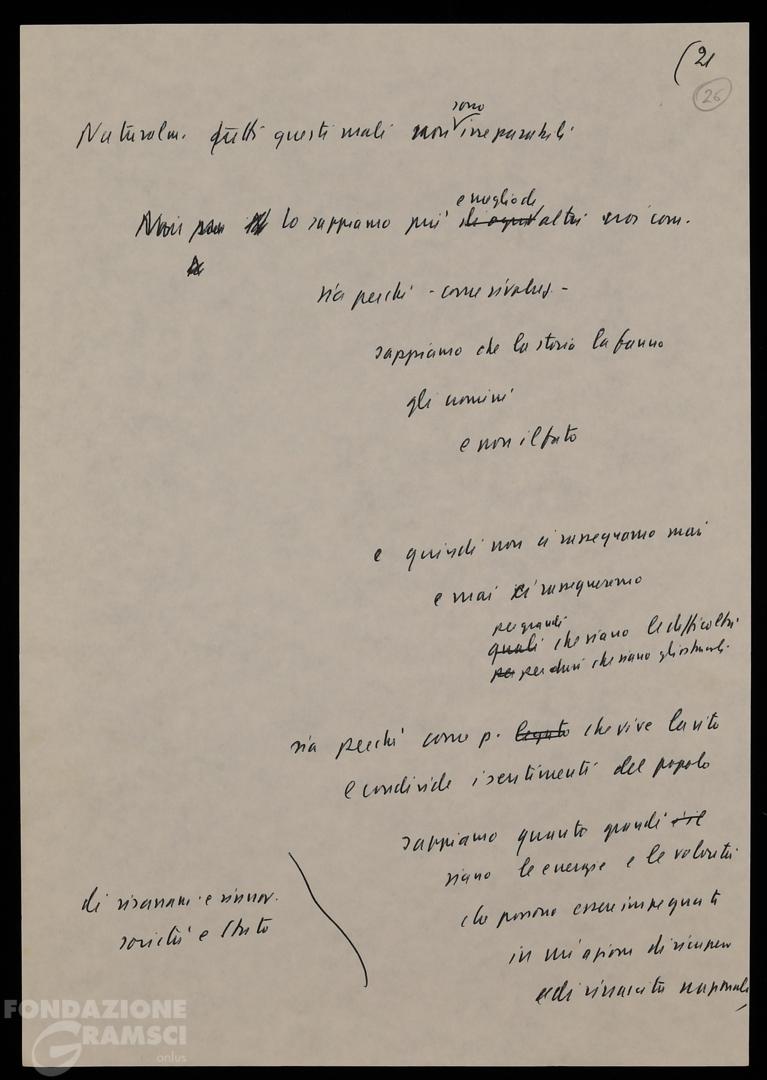 (21
26
sono
Naturalm. tutti questi mali non irreparabili
e meglio di
Noi lo sappiamo più di ogni altri noi com.
sia perché - come rivoluz. -
sappiamo che la storia la fanno
gli uomini
e non il fato
e quindi non ci rassegnamo mai
e mai ci rassegneremo
per grandi
quali che siano le difficoltà
per per duri che siano gli ostacoli.
sia perché come p. legato che vive la vita
e condivide i sentimenti del popolo
sappiamo quanto grandi
siano le energie e le volontà
che possono essere impegnate
in un'azione di ricupero
e di rinascita nazionale,
di risanam. e rinnov.
società e Stato
FONDAZIONE
GRAMSCI
onlus